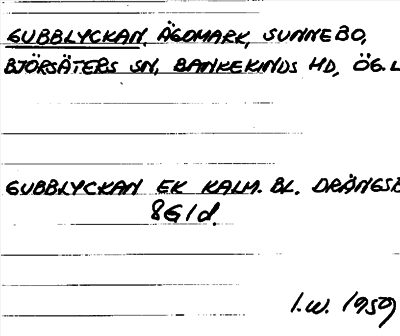 GUBBLYCKAN, ÄGOMARK, SUNNEBO,
BJÖRSÄTERS SN, BANKEKINDS HD, ÖG. L
GUBBLYCKAN EK KALM. BL. DRÄNGSE
8G1d.
I.W. 1959